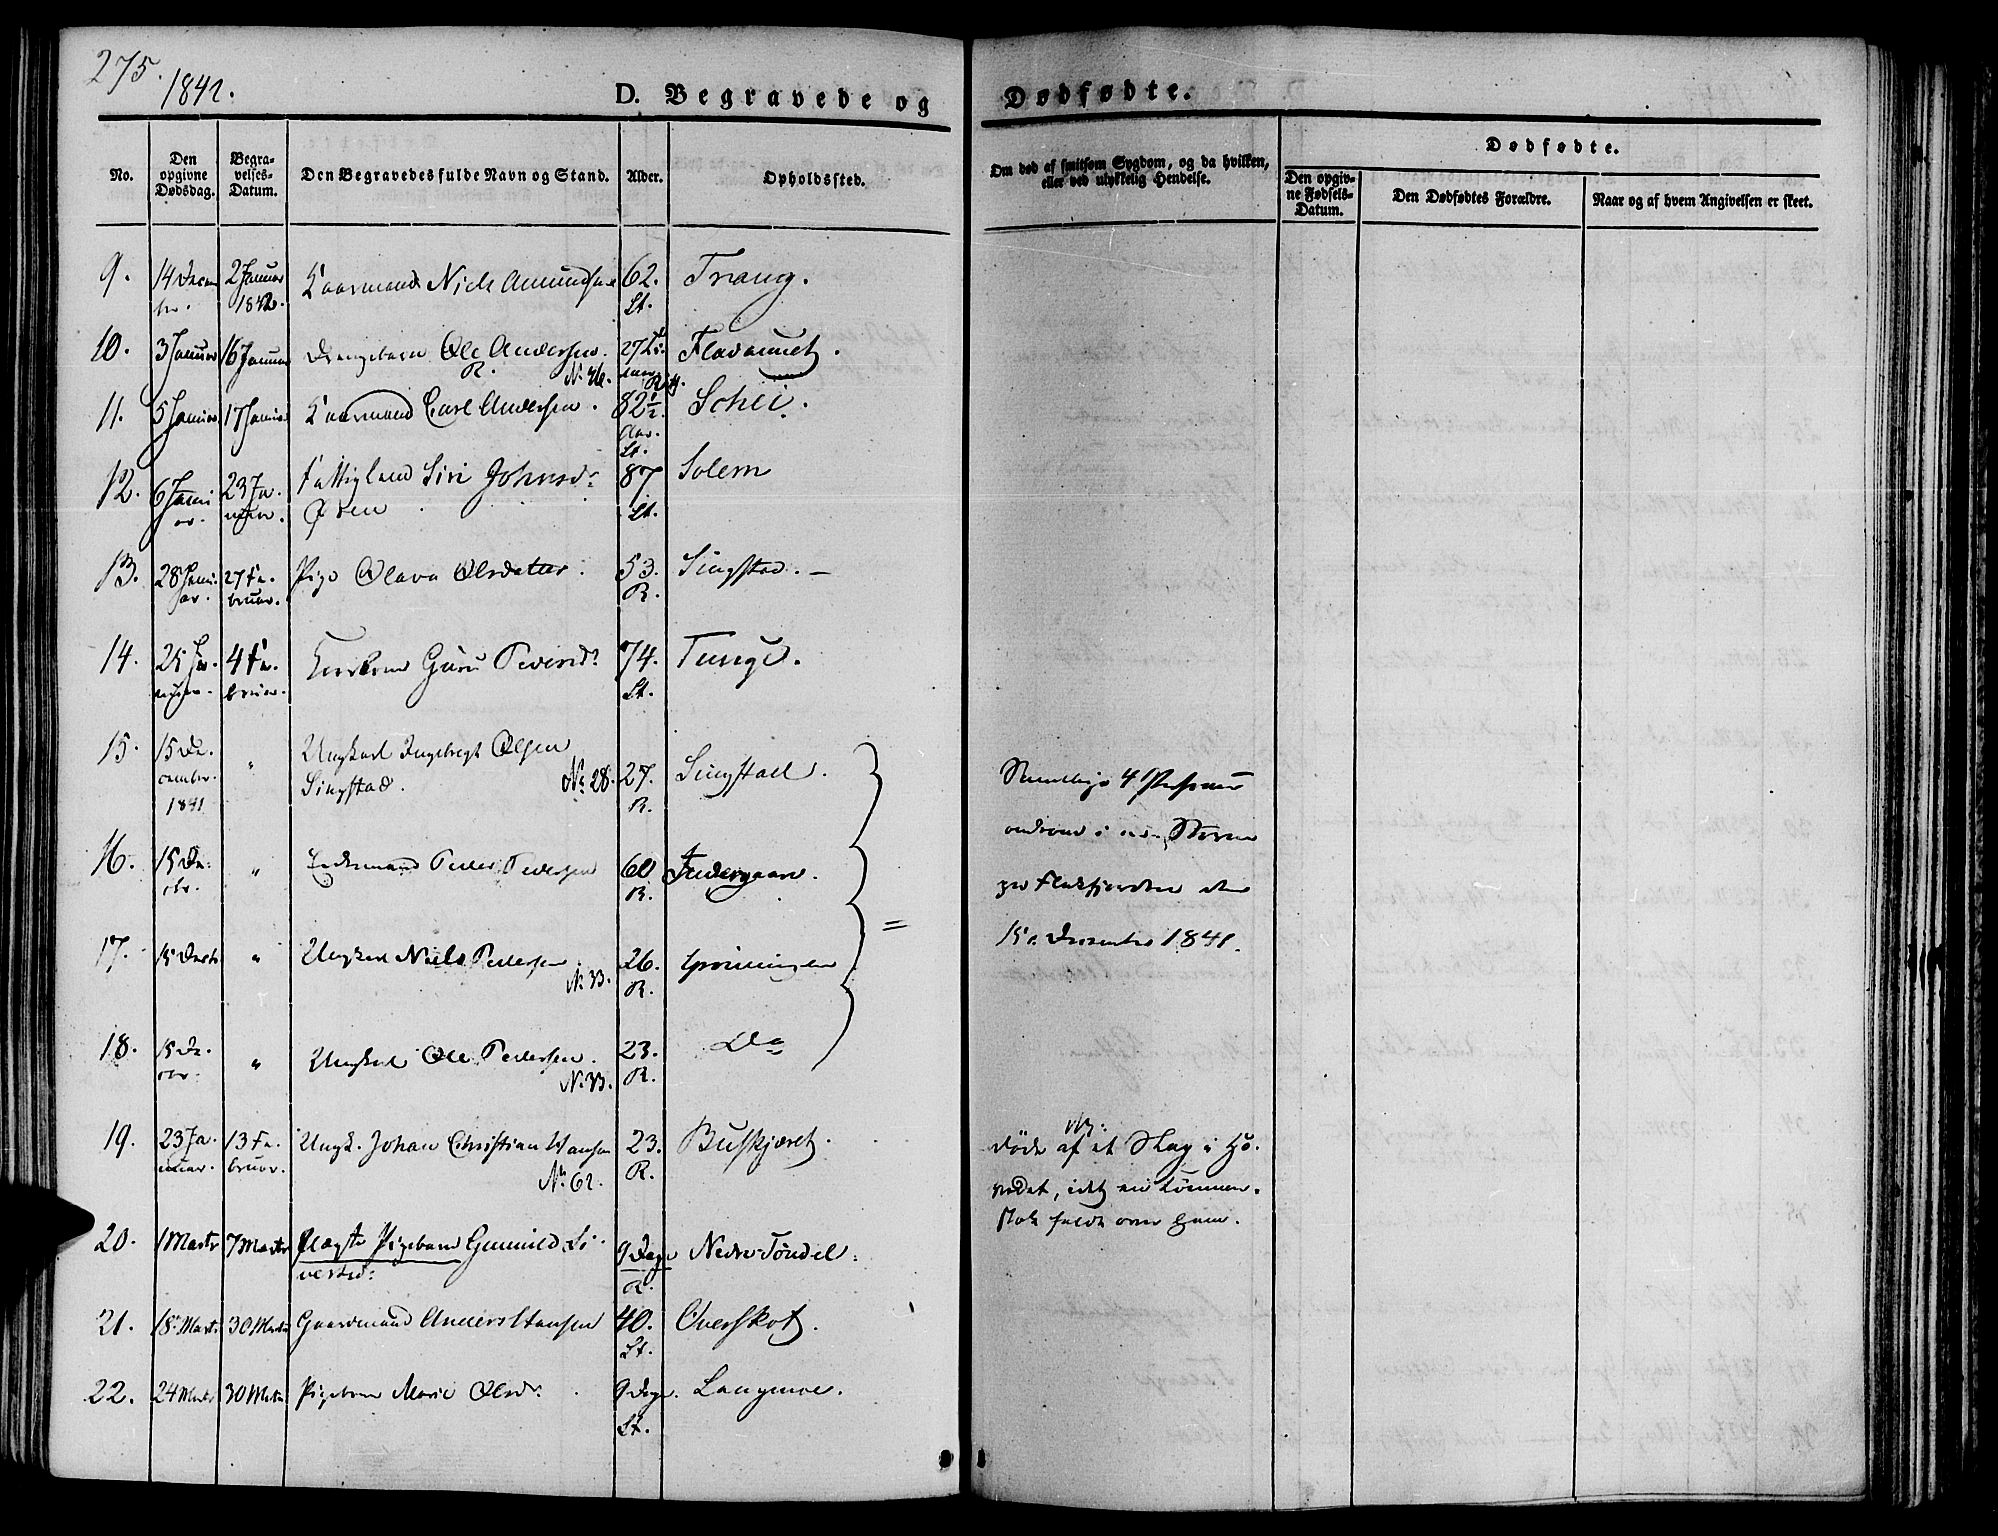 275.
1842.
D. Begravede og Dødfødte.
No.
Den opgivne Dødsdag.
Begravelses-Datum.
Den Begravedes fulde Navn og Stand.
Alder.
Opholdssted.
Om død af smitsom Sygdom, og da hvilken, eller ved ulykkelig Hendelse.
Dødfødte.
Den opgivne Fødsels-Datum.
Den Dødfødtes Forældre.
Naar og af hvem Angivelsen er skeet.
9. 14 Decembr. 2 Januar 1842. Kaarmand Niels Amundsen 62. St.
10. 3 Januar 16 Januar Drengebarn Ole Andersen. R.
No. 46.
11. 5 Januar 17 Januar Kaarmand Carl Andersen. 82½ Aar. St. Schei.
12. 6 Januar. 23 Januar. Fattiglem Siri Johnsdr. 87 St. Solem
13. 28 Januar. 27 Februar. Pige Olava Olsdatter. 53. R. Singstad. —
14. 25 Januar. 4 Februar. Guru Pedersdr 74. St. Tunge.
15. 15 December. 1841 " Ungkarl Ingebregt Olsen Singstad. No. 28. 27. R. Singstad.
16. 15 Decbr. " Peder Pedersen 60 R. Indergaard.
17. 15 Decbr " Ungkarl Niels Pedersen No. 33. 26. R. Grønningen
18. 15 Decbr. " Ungkarl Ole Pedersen. No. 33. 23. R. Do
Samtlige 4 Personer
omkom i en Storm
paa Flakfjorden den
15de December 1841.
19. 23 Januar. 13 Februar. Ungk. Johan Christian Hansen No. 62. 23. R. Buskjæret.
Døde af et Slag i Ho-
vedet, idet en Tømmer-
stok faldt over ham.
20. 1 Marts 7 Marts Pigebarn Gunnild Sivertsd: 9 Dage R. Nedre Tøndel.
21. 18 Marts 30 Marts Gaardmand Anders Hansen 40. St. Overskot.
22. 24 Marts 30 Marts Pigebarn Marie Olsdr. 9 Dage. St. Langmoe.